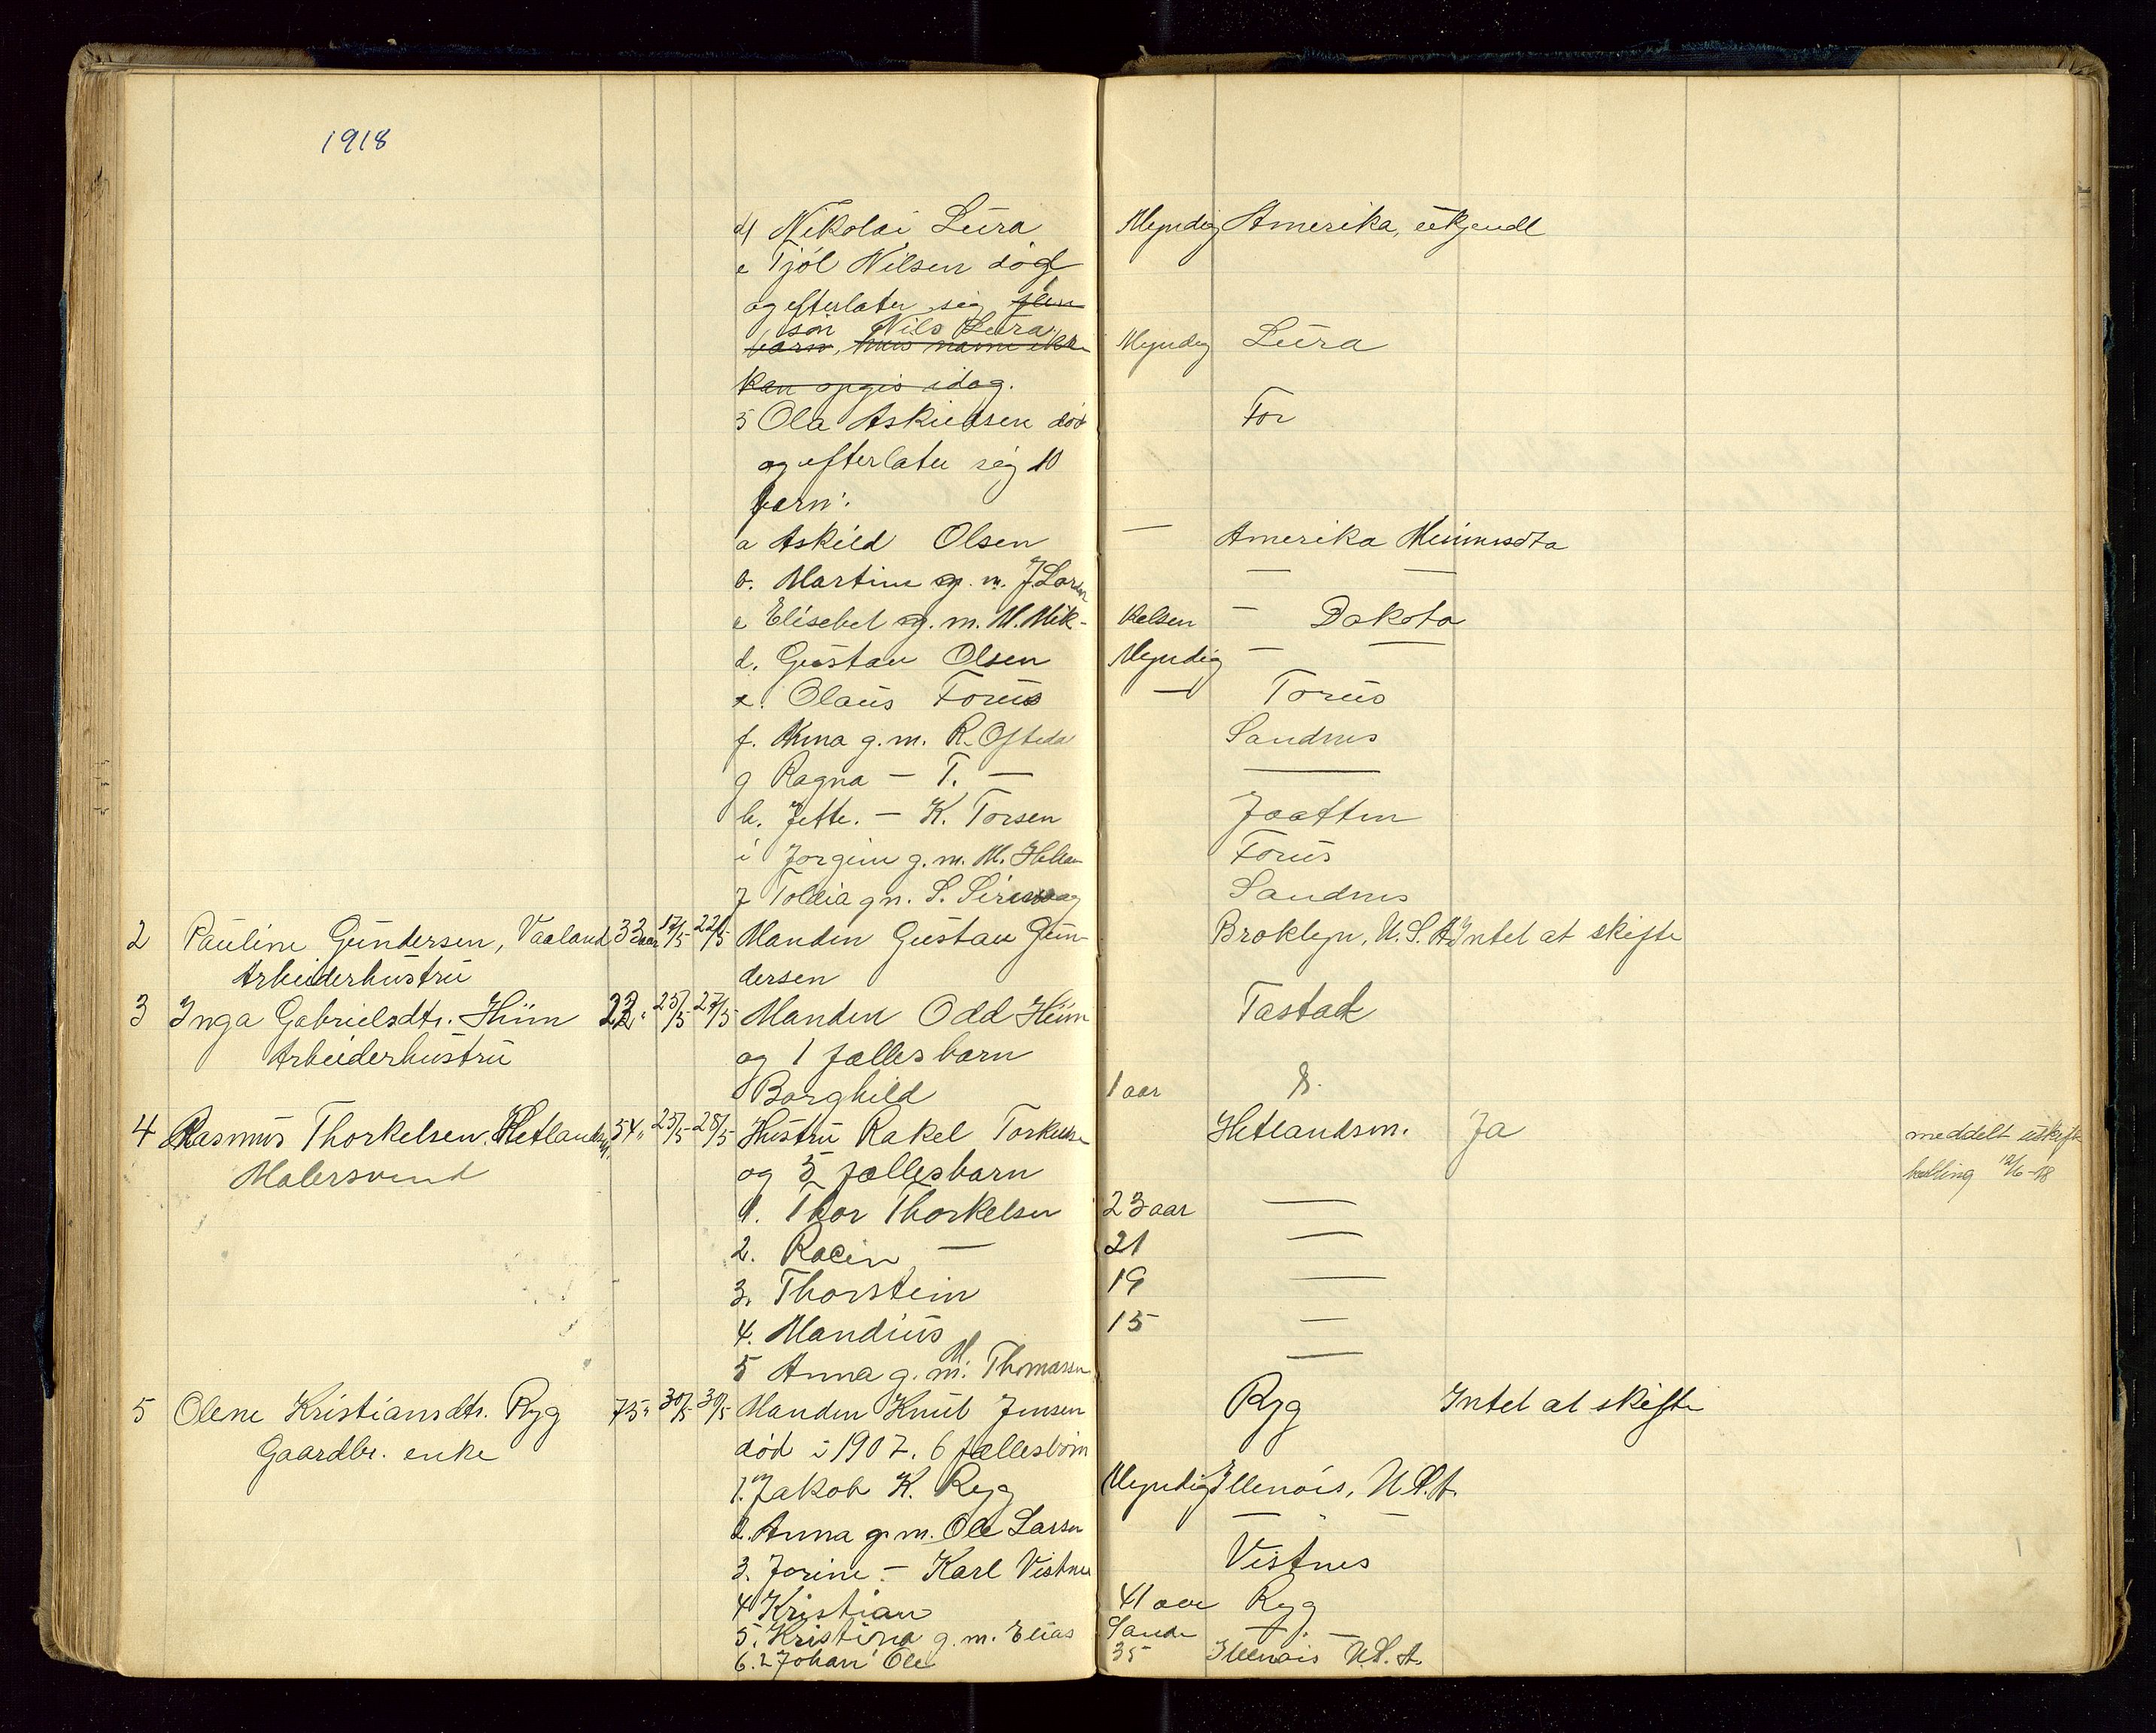 1918
d) Nikolai Lura Myndig Amerika, ukjendt
e Tjøl Nilsen død
og efterlater sig flere
søn Nils Lura
barn, hvis navne ikke Myndig Lura
kan opgis idag.
5 Ola Askildsen død For
og efterlater sig 10
barn:
a Askild Olsen — Amerika Minnesota
b. Martine g. m. J. Larsen — —
c Elisebet g. m. M. Mik- kelsen — Dakota
d. Gustav Olsen Myndig — —
e. Olaus Forus — Forus
f. Anna g. m. R. Oftedal Sandnes
g Ragna — T. — —
h. Jette. — K. Torsen Jaatten
i Jorgine g. m. M. Hellan Forus
j Tollia g m. S. Sirevaag Sandnes
2 Pauline Gundersen, Vaaland 33 aar 17/5 22/5 Manden Gustav Gun- Broklyn, U.S.A Intet at skifte
Arbeiderhustru dersen
3 Inga Gabrielsdtr. Hiim 22 " 25/5 27/5 Manden Odd Hiim Tastad
Arbeiderhustru og 1 fælles barn
Borghild 1 aar
4 Rasmus Thorkelsen, Hetlandsm. 54 " 25/5 28/5 Hustru Rakel Torkelsen Hetlandsm. Ja meddelt uskifte
Malersvend og 5 fællesbarn bevilling 12/6-18
1. Thor Thorkelsen 23 aar —
2. Racin — 21 —
3. Thorstein 19 —
4. Mandius 15 —
5 Anna g. m. M. Thomassen —
5 Olene Kristiansdtr. Ryg 75 " 30/5 30/5 Manden Knut Jensen Ryg Intet at skifte
Gaardbr. enke død i 1907. 6 fællesbørn
1. Jakob K. Ryg Myndig Illenois, U.S.A.
2. Anna g. m. Ole Larsen — " —
3. Jorine — Karl Vistnes Vistnes
4 Kristian 41 aar Ryg
5. Kristina g. m. Elias Sande — . —
6. Johan Ole 35 Illenois U.S.A.